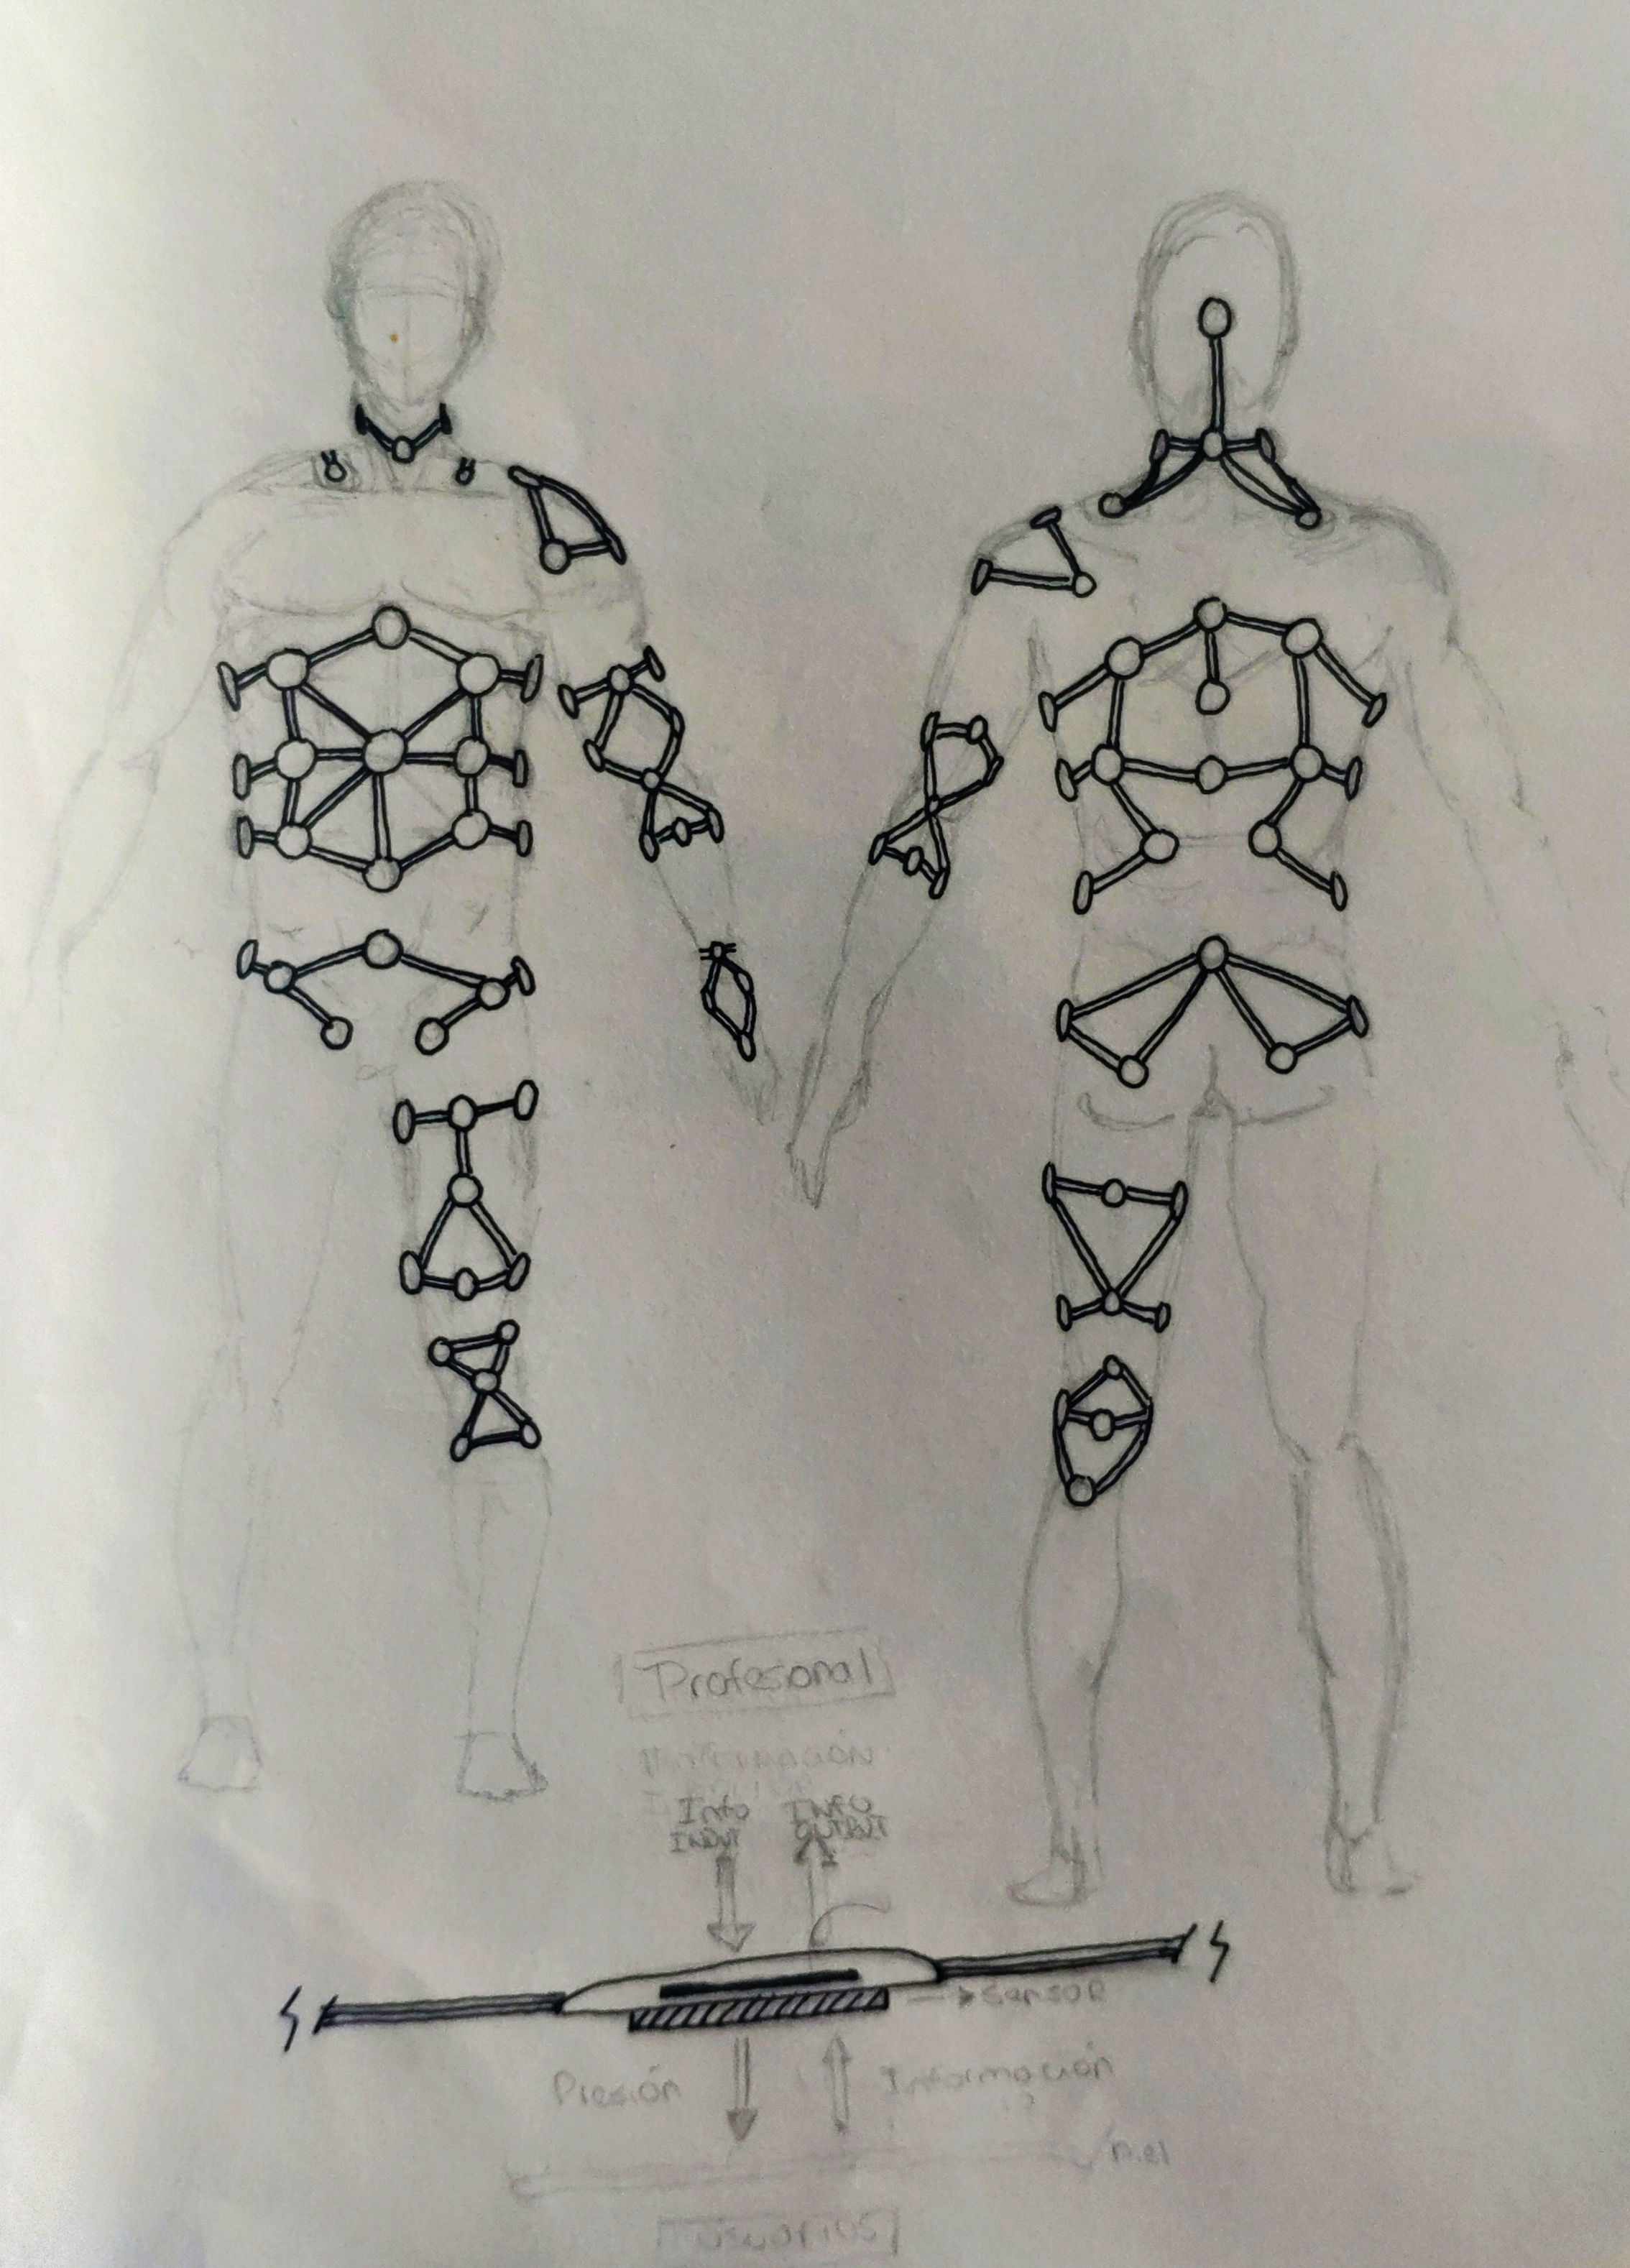 Profesional
Información
Info INFO
INPUT OUTPUT
Sensor
Presión Información
Piel
USUARIOS